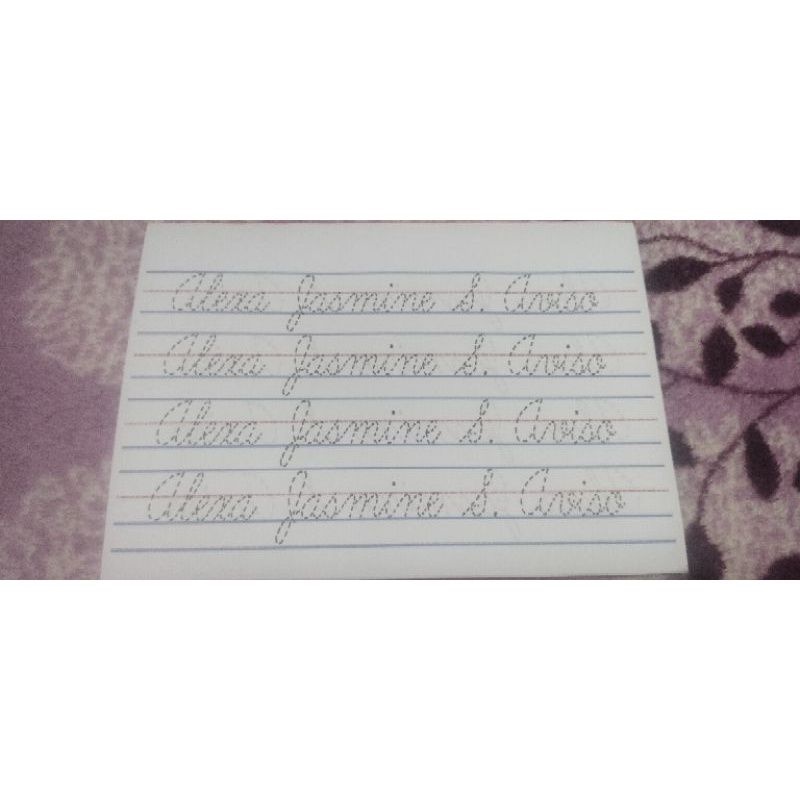 Alexa Jasmine S. Aviso
Alexa Jasmine S. Aviso
Alexa Jasmine S. Aviso
Alexa Jasmine S. Aviso